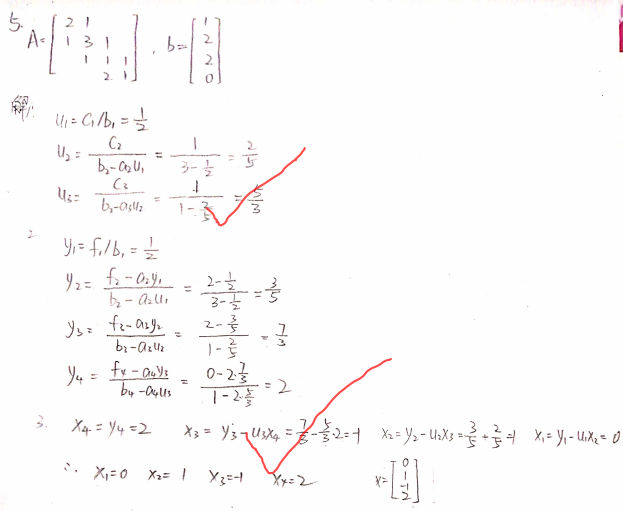 5. A = [2 1; 1 3 1; 1 1 1; 2 1], b = [1; 2; 2; 0]
解: 1. u₁ = c₁/b₁ = 1/2
u₂ = c₂/(b₂-a₂u₁) = 1/(3-1/2) = 2/5
u₃ = c₃/(b₃-a₃u₂) = 1/(1-2/5) = 5/3
2. y₁ = f₁/b₁ = 1/2
y₂ = (f₂-a₂y₁)/(b₂-a₂u₁) = (2-1/2)/(3-1/2) = 3/5
y₃ = (f₃-a₃y₂)/(b₃-a₃u₂) = (2-3/5)/(1-2/5) = 7/3
y₄ = (f₄-a₄y₃)/(b₄-a₄u₃) = (0-2·7/3)/(1-2·5/3) = 2
3. x₄ = y₄ = 2 x₃ = y₃-u₃x₄ = 7/3-5/3·2 = -1 x₂ = y₂-u₂x₃ = 3/5+2/5 = 1 x₁ = y₁-u₁x₂ = 0
∴ x₁=0 x₂=1 x₃=-1 x₄=2 x = [0; 1; -1; 2]